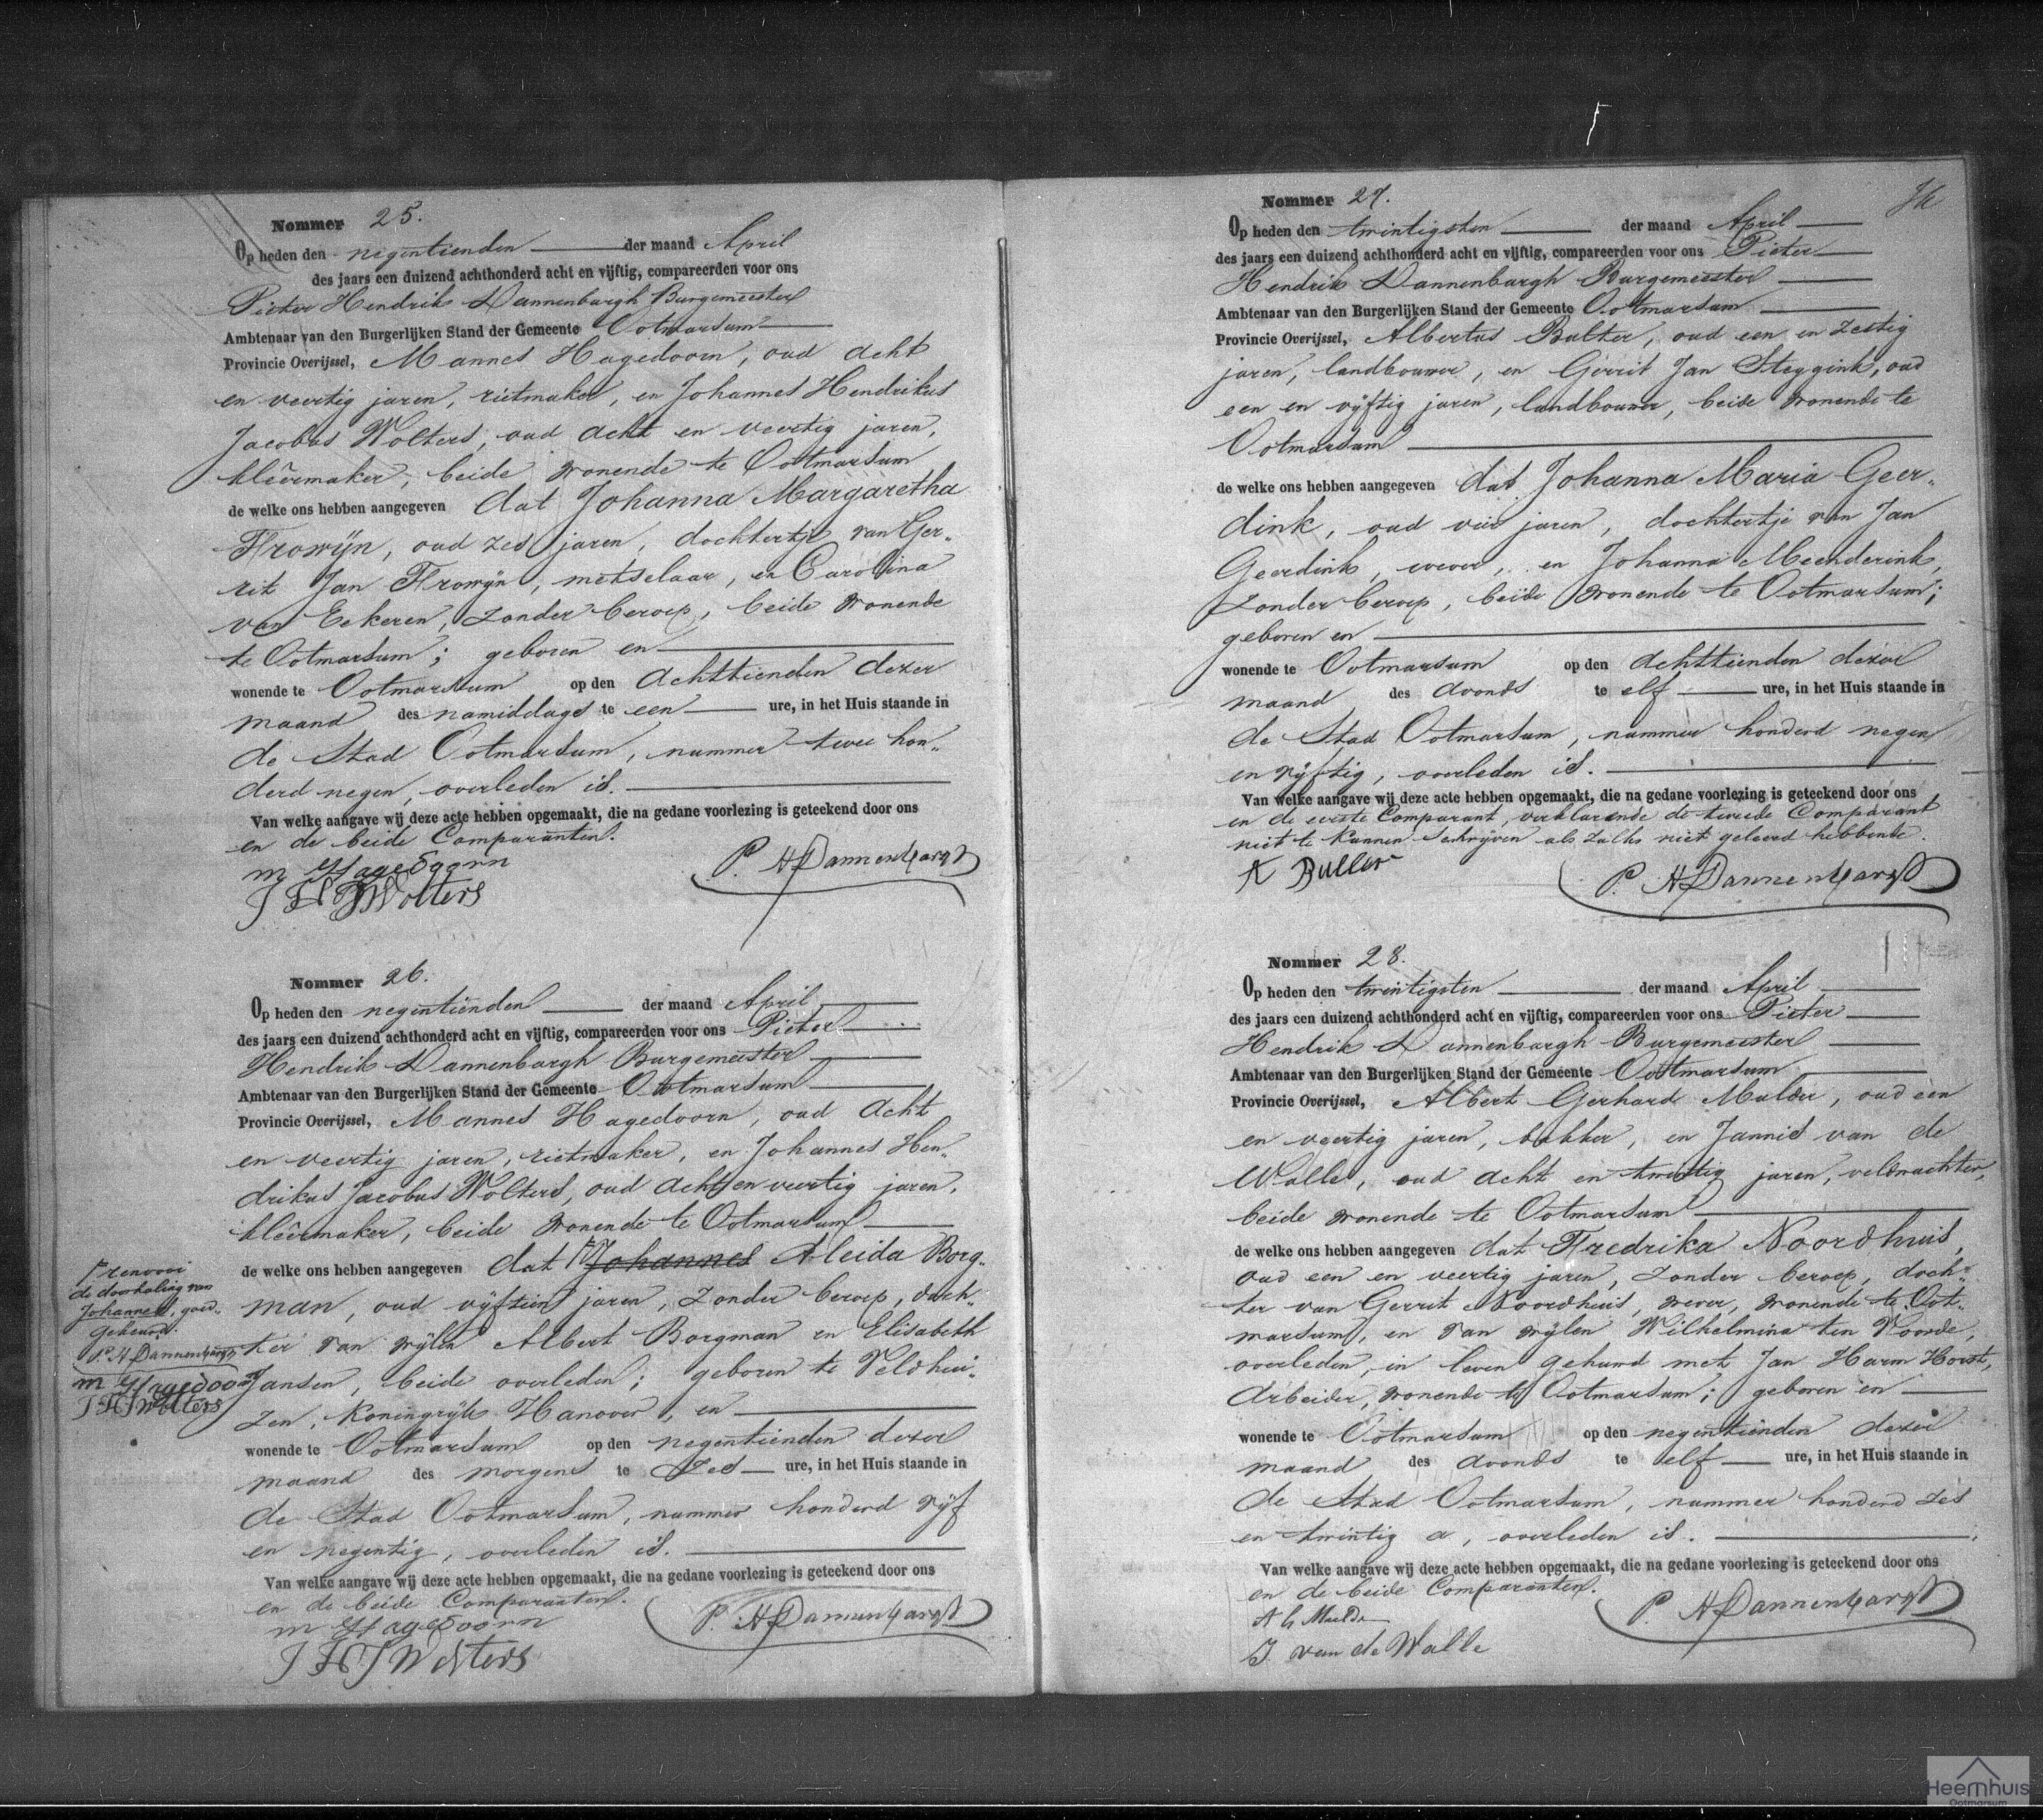 Nommer 25.
Op heden den negentienden der maand April
des jaars een duizend achthonderd acht en vijftig, compareerden voor ons
Pieter Hendrik Dannenbargh Burgemeester
Ambtenaar van den Burgerlijken Stand der Gemeente Ootmarsum
Provincie Overijssel, Mannes Hagedoorn, oud acht
en veertig jaren, rietmaker, en Johannes Hendrikus
Jacobus Wolters, oud acht en veertig jaren,
kleêrmaker, beide wonende te Ootmarsum
de welke ons hebben aangegeven dat Johanna Margaretha
Frowijn, oud zes jaren, dochtertje van Ger„
rit Jan Frowijn, metselaar, en Carolina
van Eekeren, zonder beroep, beide wonende
te Ootmarsum; geboren en
wonende te Ootmarsum op den achttienden dezer
maand des namiddags te een ure, in het Huis staande in
de Stad Ootmarsum, nummer twee hon„
derd negen, overleden is.
Van welke aangave wij deze acte hebben opgemaakt, die na gedane voorlezing is geteekend door ons
en de beide Comparanten.
m Hagedoorn
P. H Dannenbargh
J H J Wolters
Nommer 26.
Op heden den negentienden der maand April
des jaars een duizend achthonderd acht en vijftig, compareerden voor ons Pieter
Hendrik Dannenbargh Burgemeester
Ambtenaar van den Burgerlijken Stand der Gemeente Ootmarsum
Provincie Overijssel, Mannes Hagedoorn, oud acht
en veertig jaren, rietmaker, en Johannes Hen„
drikus Jacobus Wolters, oud acht en veertig jaren,
kleêrmaker, beide wonende te Ootmarsum
de welke ons hebben aangegeven dat Johannes Aleida Borg„
man, oud vijftien jaren, zonder beroep, doch„
ter van wijlen Albert Borgman en Elisabeth
Jansen, beide overleden; geboren te Veldhui„
zen, Koningrijk Hanover, en
wonende te Ootmarsum op den negentienden dezer
maand des morgens te zes ure, in het Huis staande in
de Stad Ootmarsum, nummer honderd vijf
en negentig, overleden is.
Van welke aangave wij deze acte hebben opgemaakt, die na gedane voorlezing is geteekend door ons
en de beide Comparanten.
m Hagedoorn
P. H Dannenbargh
J H J Wolters
de doorhaling van
Johannes, goed„
gekeurd.
P. H Dannenbargh
m Hagedoorn
J H J Wolters
Nommer 27.
Op heden den twintigsten der maand April
des jaars een duizend achthonderd acht en vijftig, compareerden voor ons Pieter
Hendrik Dannenbargh Burgemeester
Ambtenaar van den Burgerlijken Stand der Gemeente Ootmarsum
Provincie Overijssel, Albertus Bulter, oud een en zestig
jaren, landbouwer, en Gerrit Jan Steggink, oud
een en vijftig jaren, landbouwer, beide wonende te
Ootmarsum
de welke ons hebben aangegeven dat Johanna Maria Geer„
dink, oud vier jaren, dochtertje van Jan
Geerdink, wever, en Johanna Meenderink,
zonder beroep, beide wonende te Ootmarsum;
geboren en
wonende te Ootmarsum op den achttienden dezer
maand des avonds te elf ure, in het Huis staande in
de Stad Ootmarsum, nummer honderd negen
en vijftig, overleden is.
Van welke aangave wij deze acte hebben opgemaakt, die na gedane voorlezing is geteekend door ons
en de eerste Comparant, verklarende de tweede Comparant
niet te kunnen schrijven als zulks niet geleerd hebbende.
A Bulter
P. H Dannenbargh
Nommer 28.
Op heden den twintigsten der maand April
des jaars een duizend achthonderd acht en vijftig, compareerden voor ons Pieter
Hendrik Dannenbargh Burgemeester
Ambtenaar van den Burgerlijken Stand der Gemeente Ootmarsum
Provincie Overijssel, Albert Gerhard Mulder, oud een
en veertig jaren, bakker, en Jannis van de
Walle, oud acht en twintig jaren, veldwachter,
beide wonende te Ootmarsum
de welke ons hebben aangegeven dat Fredrika Noordhuis,
oud een en veertig jaren, zonder beroep, doch„
ter van Gerrit Noordhuis, wever, wonende te Oot„
marsum, en van wijlen Wilhelmina ten Voorde,
overleden, in leven gehuwd met Jan Harm Horst,
arbeider, wonende te Ootmarsum; geboren en
wonende te Ootmarsum op den negentienden dezer
maand des avonds te elf ure, in het Huis staande in
de Stad Ootmarsum, nummer honderd zes
en twintig a, overleden is.
Van welke aangave wij deze acte hebben opgemaakt, die na gedane voorlezing is geteekend door ons
en de beide Comparanten.
A G Mulder
P. H Dannenbargh
J. van de Walle
Heemhuis
Ootmarsum